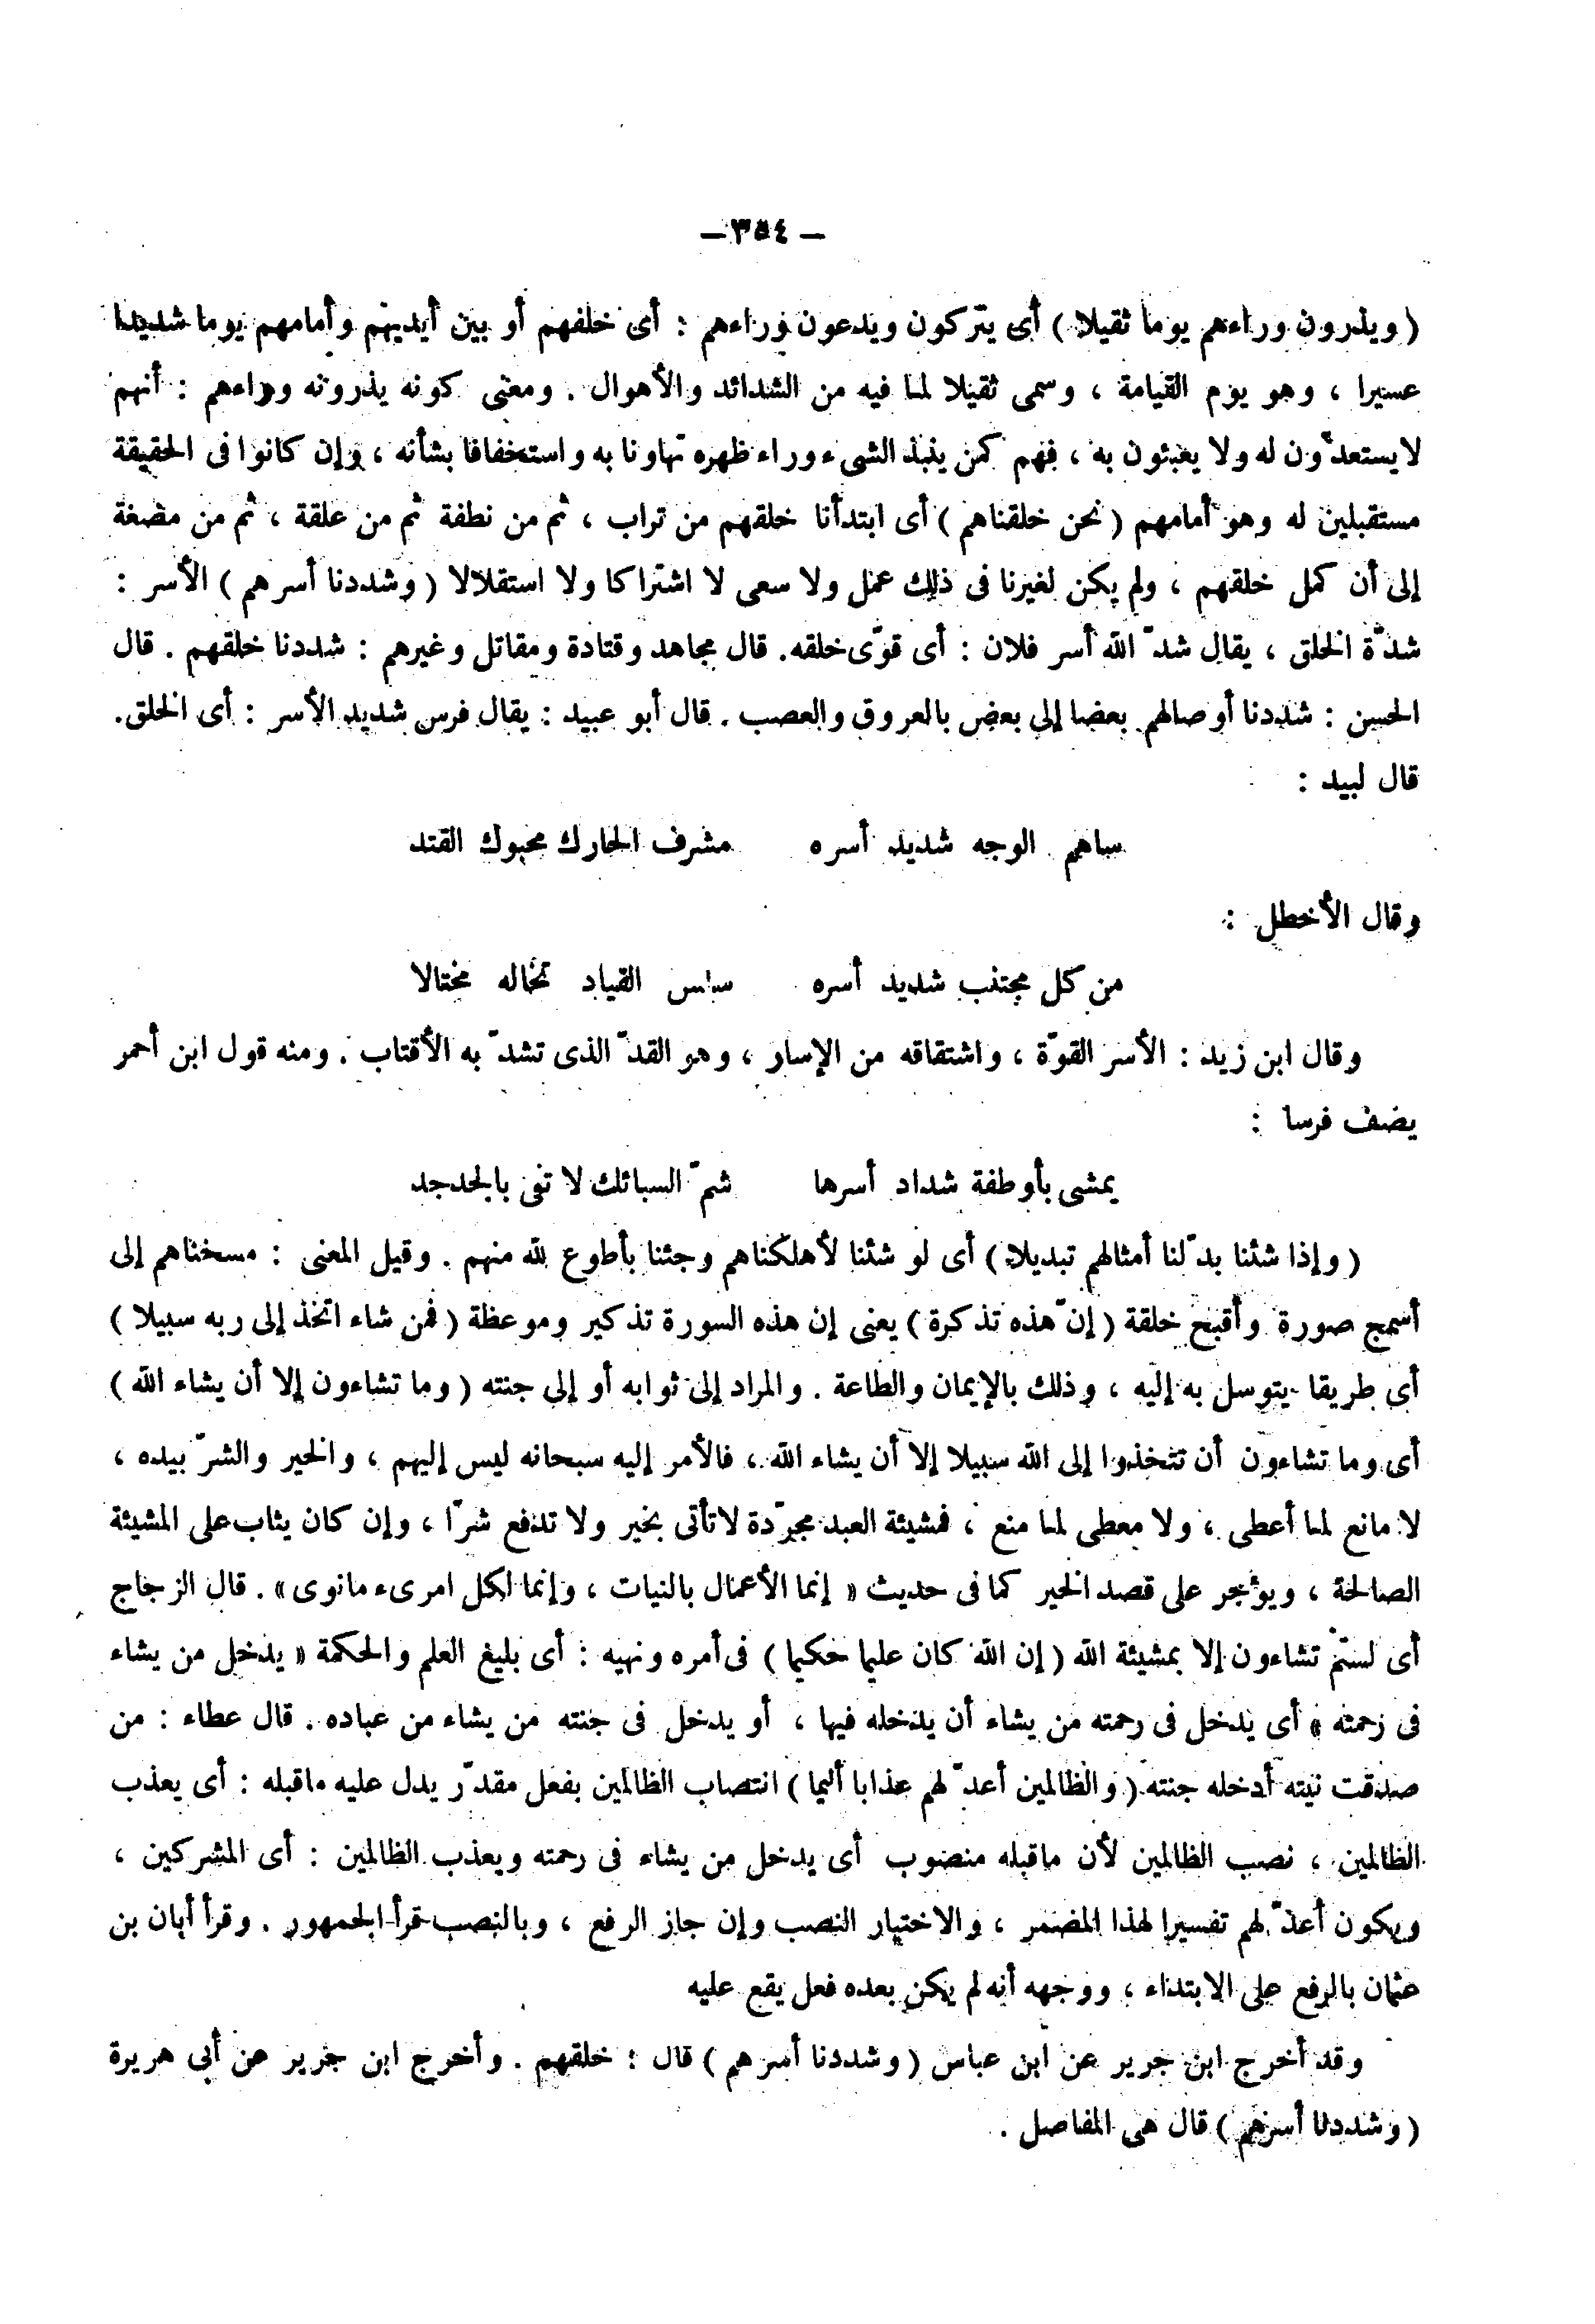 — ٣٥٤ —
( ويذرون وراءهم يوما ثقيلا ) أى يتركون ويدعون وراءهم : أى خلفهم أو بين أيديهم وأمامهم يوما شديدا
عسيرا ، وهو يوم القيامة ، وسمى ثقيلا لما فيه من الشدائد والأهوال . ومعنى كونه يذرونه وراءهم : أنهم
لا يستعدّون له ولا يعبئون به ، فهم كمن ينبذ الشىء وراء ظهره تهاونا به واستخفافا بشأنه ، وإن كانوا فى الحقيقة
مستقبلين له وهو أمامهم ( نحن خلقناهم ) أى ابتدأنا خلقهم من تراب ، ثم من نطفة ثم من علقة ، ثم من مضغة
إلى أن كمل خلقهم ، ولم يكن لغيرنا فى ذلك عمل ولا سعى لا اشتراكا ولا استقلالا ( وشددنا أسرهم ) الأسر :
شدّة الخلق ، يقال شدّ الله أسر فلان : أى قوّى خلقه . قال مجاهد وقتادة ومقاتل وغيرهم : شددنا خلقهم . قال
الحسن : شددنا أوصالهم بعضا إلى بعض بالعروق والعصب . قال أبو عبيد : يقال فرس شديد الأسر : أى الخلق .
قال لبيد :
ساهم الوجه شديد أسره مشرف الحارك محبوك القتد
وقال الأخطل :
من كل مجتنب شديد أسره سلس القياد تخاله مختالا
وقال ابن زيد : الأسر القوّة ، واشتقاقه من الإسار ، وهو القدّ الذى تشدّ به الأقتاب . ومنه قول ابن أحمر
يصف فرسا :
يمشى بأوظفة شداد أسرها شمّ السبائك لا تفى بالجدجد
( وإذا شئنا بدّلنا أمثالهم تبديلا ) أى لو شئنا لأهلكناهم وجئنا بأطوع لله منهم . وقيل المعنى : مسخناهم إلى
أسمج صورة وأقبح خلقة ( إنّ هذه تذكرة ) يعنى إن هذه السورة تذكير وموعظة ( فمن شاء اتخذ إلى ربه سبيلا )
أى طريقا يتوسل به إليه ، وذلك بالإيمان والطاعة . والمراد إلى ثوابه أو إلى جنته ( وما تشاءون إلا أن يشاء الله )
أى وما تشاءون أن تتخذوا إلى الله سبيلا إلا أن يشاء الله ، فالأمر إليه سبحانه ليس إليهم ، والخير والشرّ بيده ،
لا مانع لما أعطى ، ولا معطى لما منع ، فمشيئة العبد مجرّدة لا تأتى بخير ولا تدفع شرّا ، وإن كان يثاب على المشيئة
الصالحة ، ويؤجر على قصد الخير كما فى حديث « إنما الأعمال بالنيات ، وإنما لكل امرىء مانوى » . قال الزجاج
أى لستم تشاءون إلا بمشيئة الله ( إن الله كان عليما حكيما ) فى أمره ونهيه : أى بليغ العلم والحكمة « يدخل من يشاء
فى رحمته » أى يدخل فى رحمته من يشاء أن يدخله فيها ، أو يدخل فى جنته من يشاء من عباده . قال عطاء : من
صدقت نيته أدخله جنته ( والظالمين أعدّ لهم عذابا أليما ) انتصاب الظالمين بفعل مقدّر يدل عليه ماقبله : أى يعذب
الظالمين ، نصب الظالمين لأن ماقبله منصوب أى يدخل من يشاء فى رحمته ويعذب الظالمين : أى المشركين ،
ويكون أعدّ لهم تفسيرا لهذا المضمر ، والاختيار النصب وإن جاز الرفع ، وبالنصب قرأ الجمهور . وقرأ أبان بن
عثمان بالرفع على الابتداء ، ووجهه أنه لم يكن بعده فعل يقع عليه
وقد أخرج ابن جرير عن ابن عباس ( وشددنا أسرهم ) قال : خلقهم . وأخرج ابن جرير عن أبى هريرة
( وشددنا أسرهم ) قال هى المفاصل .